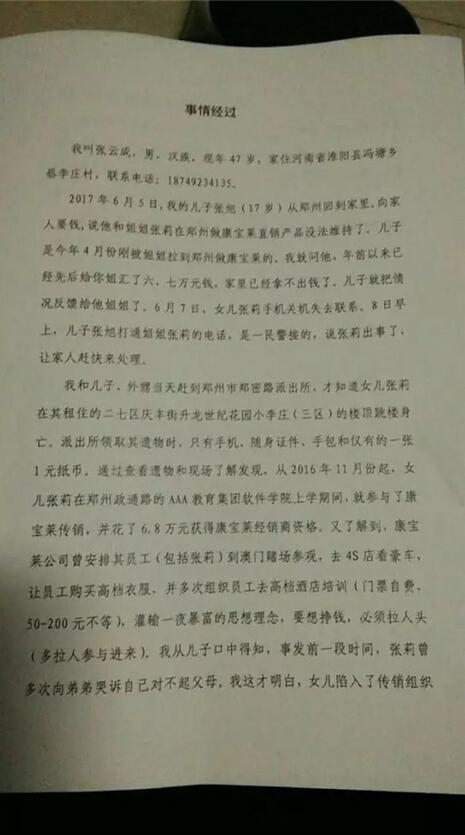 事情经过
我叫张云成，男，汉族，现年 47 岁，家住河南省淮阳县冯塘乡
蔡李庄村，联系电话：18749234135。
2017 年 6 月 5 日，我的儿子张旭（17 岁）从郑州回到家里，向家
人要钱，说他和姐姐张莉在郑州做康宝莱直销产品没法维持了。儿子
是今年 4 月份刚被姐姐拉到郑州做康宝莱的。我就问他，年前以来已
经先后给你姐汇了六、七万元钱，家里已经拿不出钱了。儿子就把情
况反馈给他姐姐了。6 月 7 日，女儿张莉手机关机失去联系。8 日早
上，儿子张旭打通姐姐张莉的电话，是一民警接的，说张莉出事了，
让家人赶快来处理。
我和儿子、外甥当天赶到郑州市郑密路派出所，才知道女儿张莉
在其租住的二七区庆丰街升龙世纪花园小李庄（三区）的楼顶跳楼身
亡。派出所领取其遗物时，只有手机、随身证件、手包和仅有的一张
1 元纸币。通过查看遗物和现场了解发现，从 2016 年 11 月份起，女
儿张莉在郑州政通路的 AAA 教育集团软件学院上学期间，就参与了康
宝莱传销，并花了 6.8 万元获得康宝莱经销商资格。又了解到，康宝
莱公司曾安排其员工（包括张莉）到澳门赌场参观，去 4S 店看豪车，
让员工购买高档衣服，并多次组织员工去高档酒店培训（门票自费，
50-200 元不等），灌输一夜暴富的思想理念，要想挣钱，必须拉人头
（多拉人参与进来）。我从儿子口中得知，事发前一段时间，张莉曾
多次向弟弟哭诉自己对不起父母。我这才明白，女儿陷入了传销组织